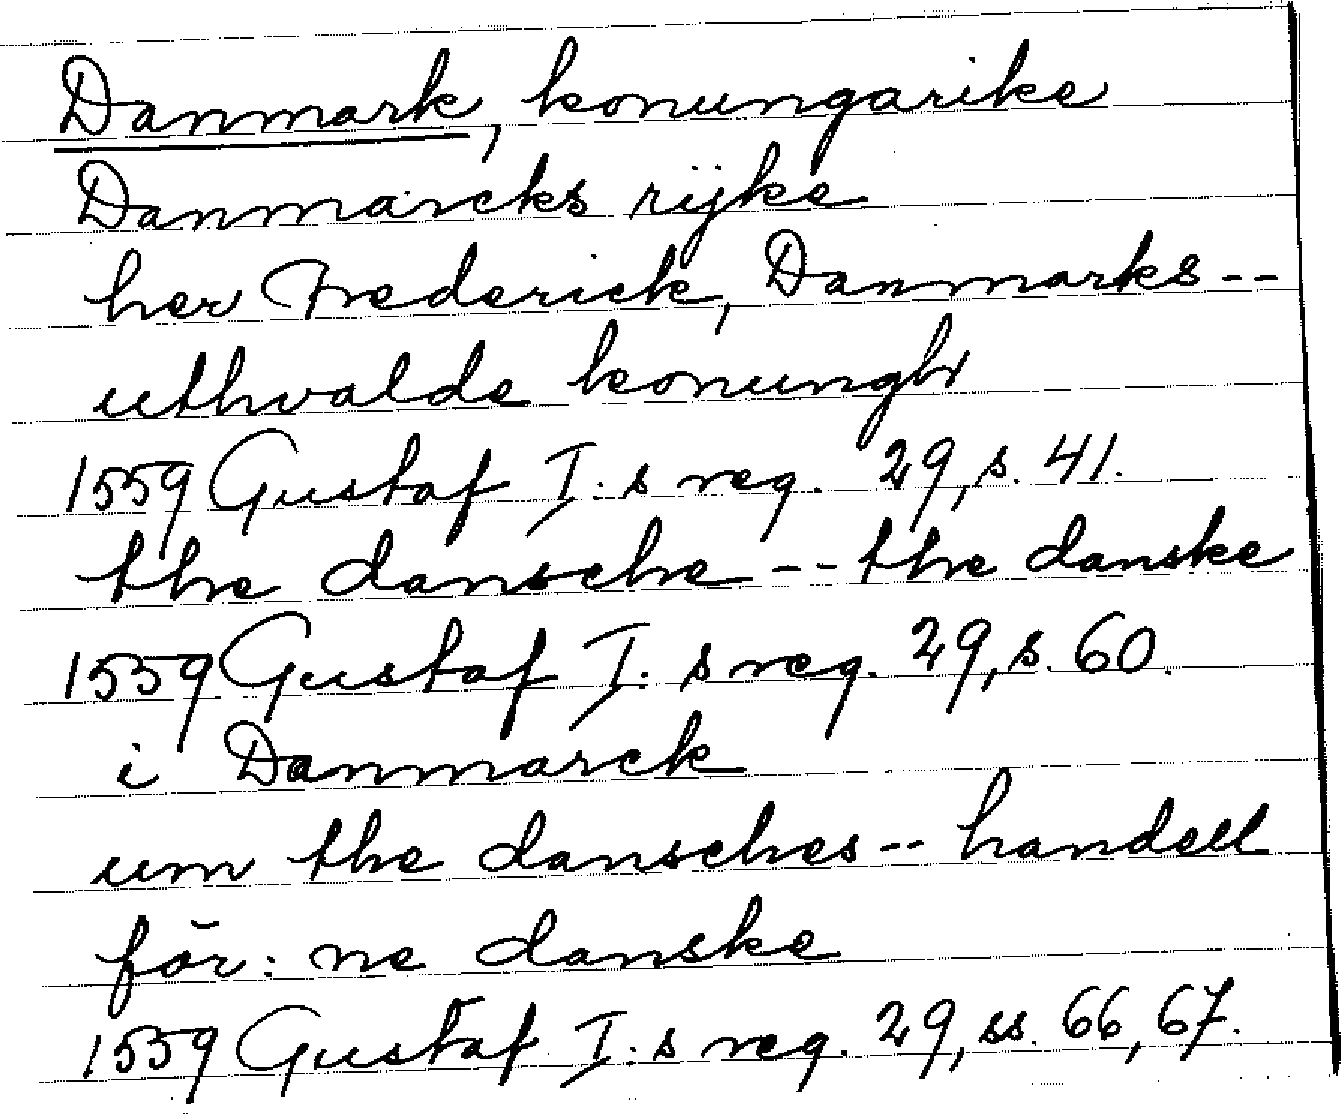 Danmark, konungarike
Danmarcks rijke
her Frederick, Danmarks --
uthvalde konungh
1559 Gustaf I:s reg. 29, s. 41.
the dansche -- the danske
1559 Gustaf I:s reg. 29, s. 60.
i Danmarck
um the dansches -- handell
för:ne danske
1559 Gustaf I:s reg. 29, ss. 66, 67.